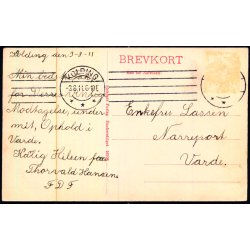 Kolding den 3-8-11
BREVKORT
Min bed
KOLDING
for Deres
3.8.11.6-7E
Modtagelse, under
mit, Ophold i
Varde.
Hilsen fra
Thorvald Hansen
F D F
Enkefru Lassen
Nørreport
Varde.